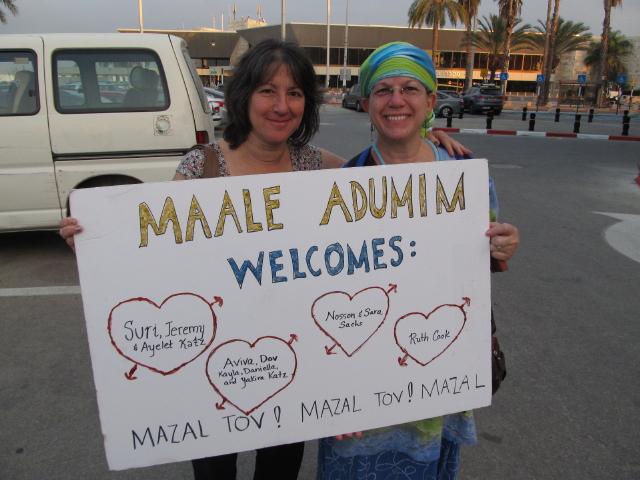 MAALE ADUMIM
WELCOMES:
Suri, Jeremy
& Ayelet Katz
Aviva, Dov
Kayla, Daniella,
and Yakira Katz
Nosson & Sara
Sachs
Ruth Cook
MAZAL TOV! MAZAL TOV! MAZAL